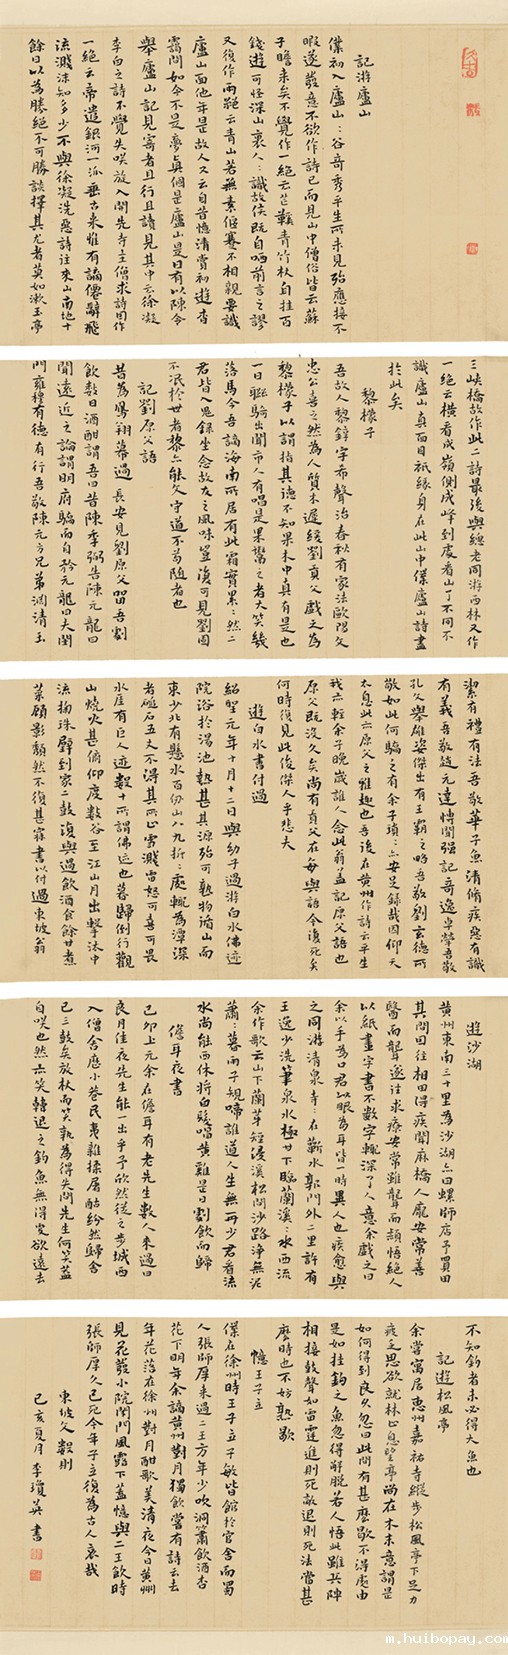 記游廬山
僕初入廬山々谷奇秀平生所未見殆應接不
暇遂發意不欲作詩已而見山中僧俗皆云蘇
子瞻來矣不覺作一絕云芒鞵青竹杖自挂百
錢遊可怪深山裏人々識故侯既自哂前言之謬
又復作兩絕云青山若無素偃蹇不相親要識
廬山面他年是故人又云自昔憶清賞初遊杳
靄間如今不是夢真個是廬山是日有以陳令
舉廬山記見寄者且行且讀見其中云徐凝
李白之詩不覺失笑旋入開先寺主僧求詩因作
一絕云帝遣銀河一派垂古來惟有謫僊辭飛
流濺沫知多少不與徐凝洗惡詩往來山南地十
餘日以為勝絕不可勝談擇其尤者莫如漱玉亭
三峽橋故作此二詩最後與總老同游西林又作
一絕云橫看成嶺側成峰到處看山了不同不
識廬山真面目祇緣身在此山中僕廬山詩盡
於此矣
黎檬子
吾故人黎錞字希聲治春秋有家法歐陽文
忠公喜之然為人質木遲緩劉貢父戲之為
黎檬子以謂指其德不知果木中真有是也
一日聯騎出聞市人有唱是果鬻之者大笑幾
落馬今吾謫海南所居有此霜實纍々然二
君皆入鬼錄坐念故友之風味豈復可見劉固
不泯於世者黎亦能文守道不苟隨者也
記劉原父語
昔為鳳翔幕過長安見劉原父留吾劇
飲數日酒酣謂吾曰昔陳季弼告陳元龍曰
聞遠近之論謂明府驕而自矜元龍曰夫閨
門雍穆有德有行吾敬陳元方兄弟淵清玉
潔有禮有法吾敬華子魚清脩疾惡有識
有義吾敬趙元達博聞強記奇逸卓犖吾敬
孔文舉雄姿傑出有王霸之略吾敬劉玄德所
敬如此何驕之有餘子瑣々亦安足錄哉因仰天
太息此亦原父之雅趣也吾後在黃州作詩云平生
我亦輕餘子晚歲誰人念此翁蓋記原父語也
原父既沒久矣尚有貢父在每與語今復死矣
何時復見此俊傑人乎悲夫
遊白水書付過
紹聖元年十月十二日與幼子過游白水佛迹
院浴於湯池熱甚其源殆可熟物循山而
東少北有懸水百仞山八九折々處輒為潭深
者磓石五丈不得其所止雪濺雷怒可喜可畏
水崖有巨人迹數十所謂佛迹也暮歸倒行觀
山燒火甚俯仰度數谷至江山月出擊汰中
流掬弄珠璧到家二鼓復與過飲酒食餘甘煮
菜顧影頹然不復甚寐書以付過東坡翁
遊沙湖
黃州東南三十里為沙湖亦曰螺師店予買田
其間因往相田得疾聞麻橋人龐安常善
醫而聾遂往求療安常雖聾而穎悟絕人
以紙畫字書不數字輒深了人意余戲之曰
余以手為口君以眼為耳皆一時異人也疾愈與
之同游清泉寺々在蘄水郭門外二里許有
王逸少洗筆泉水極甘下臨蘭溪々水西流
余作歌云山下蘭芽短浸溪松間沙路淨無泥
蕭々暮雨子規啼誰道人生無再少君看流
水尚能西休將白髮唱黃雞是日劇飲而歸
儋耳夜書
己卯上元余在儋耳有老書生數人來過曰
良月佳夜先生能一出乎予欣然從之步城西
入僧舍歷小巷民夷雜揉屠酤紛然歸舍
已三鼓矣放杖而笑孰為得失問先生何笑蓋
自笑也然亦笑韓退之釣魚無得更欲遠去
不知釣者未必得大魚也
記遊松風亭
余嘗寓居惠州嘉祐寺縱步松風亭下足力
疲乏思欲就林止息望亭尚在木末意謂是
如何得到良久忽曰此間有甚麼歇不得處由
是如挂鈎之魚忽得解脫若人悟此雖兵陣
相接鼓聲如雷霆進則死敵退則死法當甚
麼時也不妨熟歇
憶王子立
僕在徐州時王子立子敏皆館於官舍而蜀
人張師厚來過二王方年少吹洞簫飲酒杏
花下明年余謫黃州對月獨飲嘗有詩云去
年花落在徐州對月酣歌美清夜今日黃州
見花發小院閉門風露下蓋憶與二王飲時
張師厚久已死今年子立復為古人哀哉
東坡文數則
己亥夏月李瓊英書
m.huibopay.com